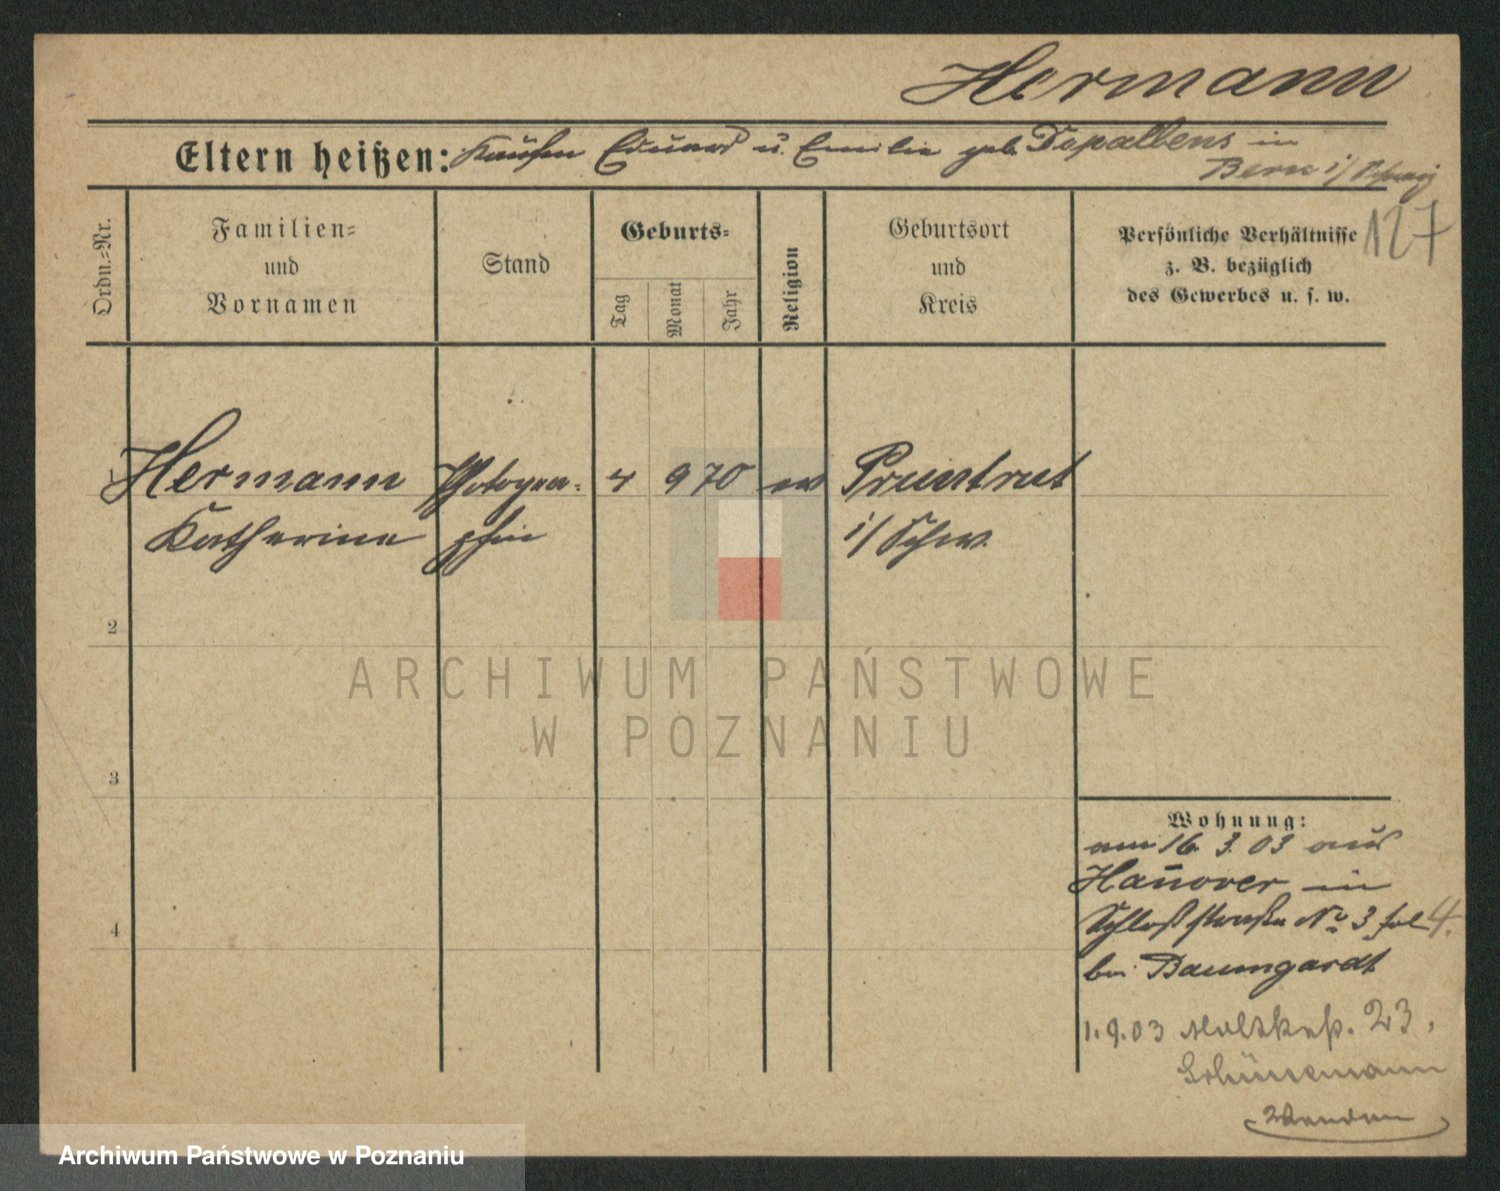 Hermann
Eltern heißen: Eduard u. Emilie geb. Depallens in
Bern i/
127
Ordn.=Nr.
Familien=
und
Vornamen
Stand
Geburts=
Tag
Monat
Jahr
Religion
Geburtsort
und
Kreis
Persönliche Verhältnisse
z. B. bezüglich
des Gewerbes u. s. w.
Hermann Photogra= 4 9 70 ev Pruntrut
Katherine phin i/ Schw.
2
ARCHIWUM PAŃSTWOWE
W POZNANIU
3
Wohnung:
am 16. 3. 03 aus
Hannover in
Schloßstraße No 3 4.
bei Baumgardt
4
1.9.03 Moltkestr. 23.
Schünemann
Wenden
Archiwum Państwowe w Poznaniu